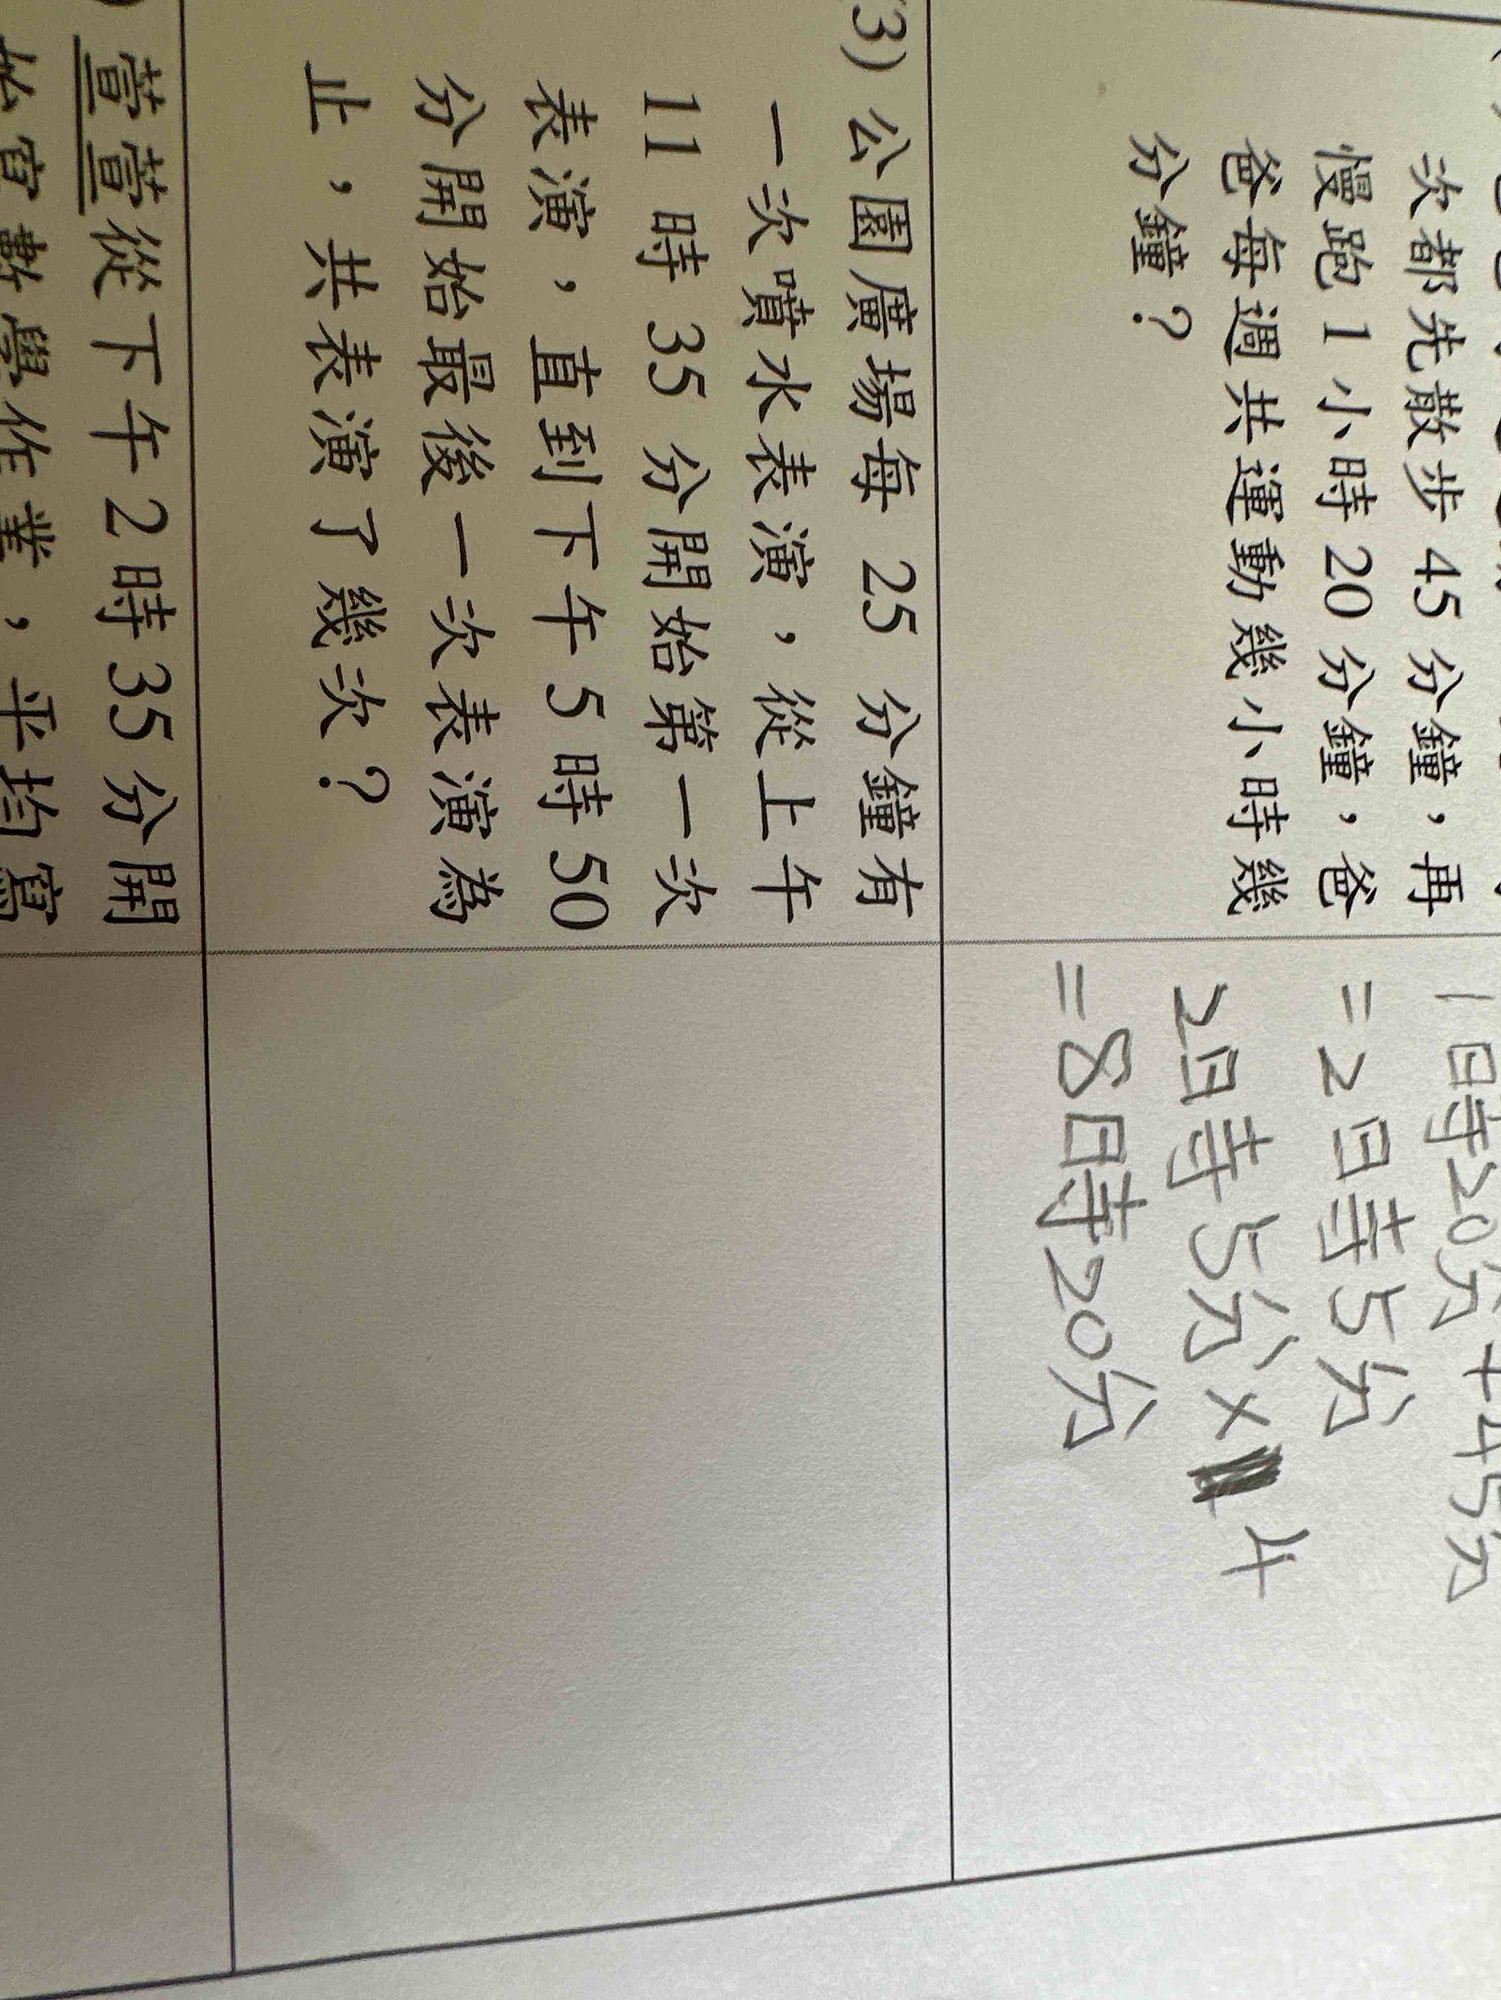 次都先散步 45 分鐘，再
慢跑 1 小時 20 分鐘，爸
爸每週共運動幾小時幾
分鐘？
1時20分+45分
=2時5分
2時5分×4
=8時20分
3) 公園廣場每 25 分鐘有
一次噴水表演，從上午
11 時 35 分開始第一次
表演，直到下午 5 時 50
分開始最後一次表演為
止，共表演了幾次？
萱萱從下午2時35分開
始寫數學作業，平均寫